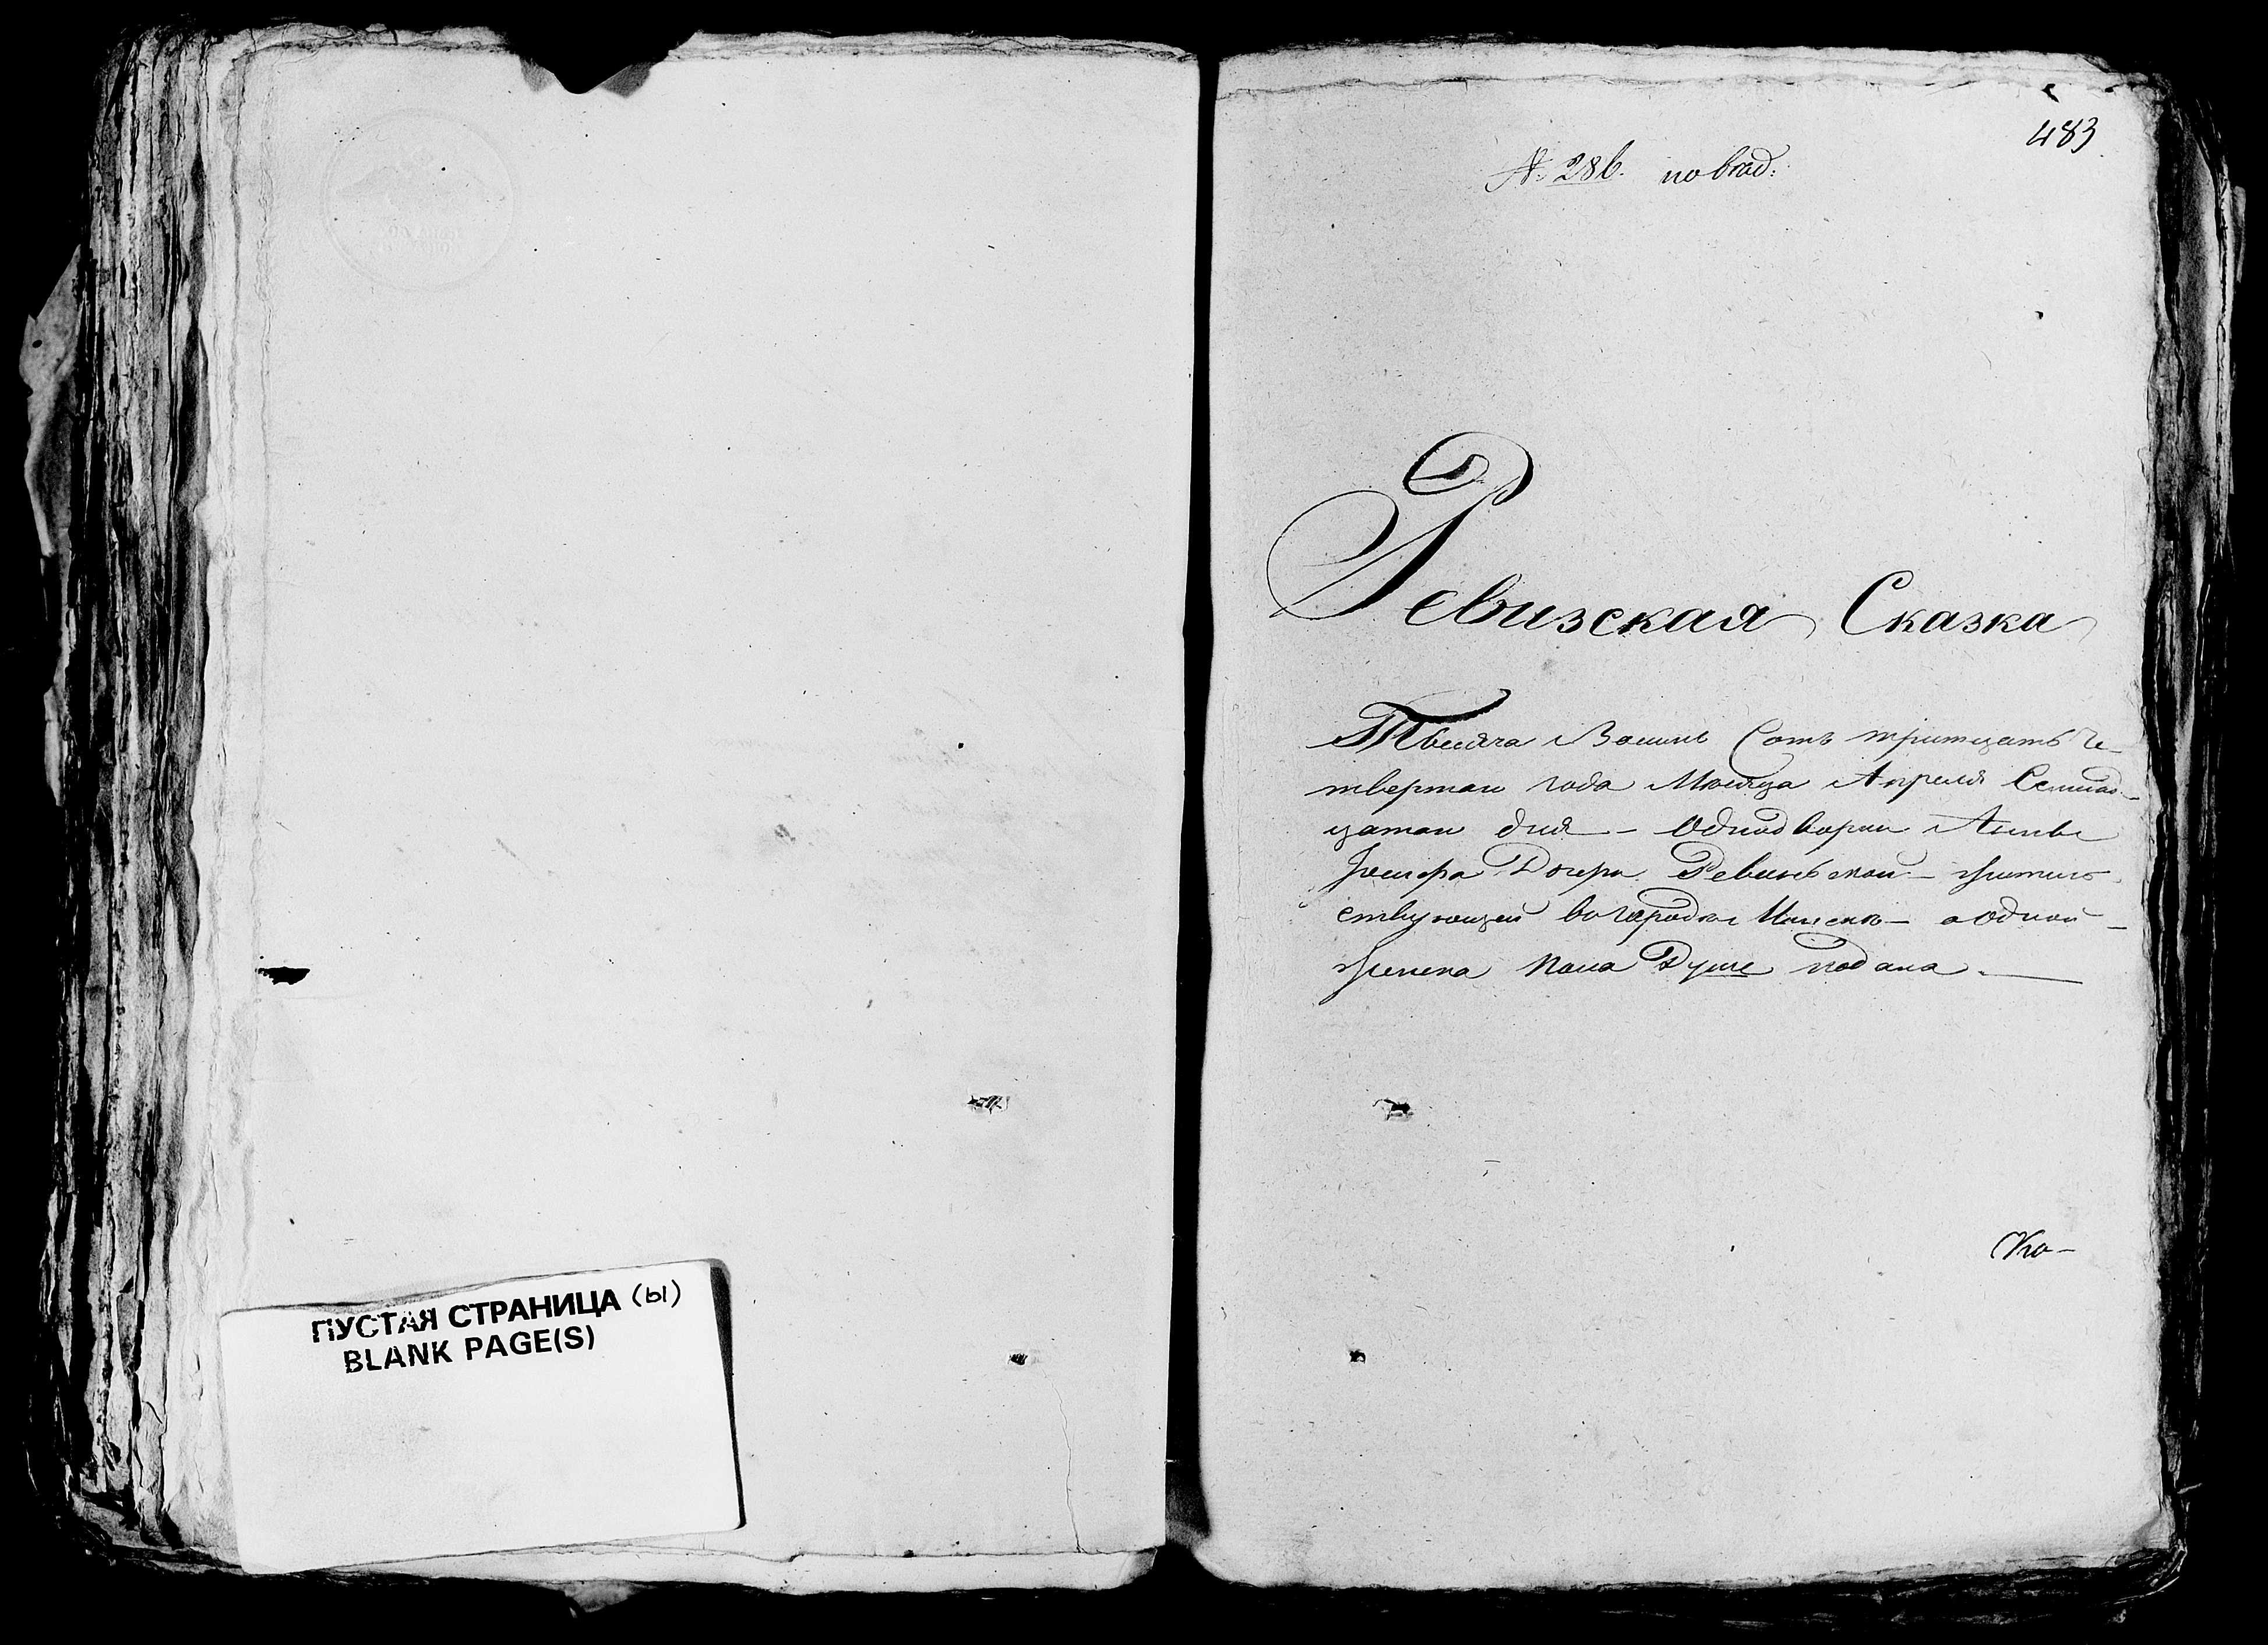 ПУСТАЯ СТРАНИЦА (ы)
BLANK PAGE(S)
483
№ 286. по вход:
Ревизская Сказка
Тысяча Восимь Сотъ тритцать Че-
твертаго года Месяца Апреля Семнад-
цатаго дня - Однодворки Анны
Дочери жительс-
ствующей в городе Минске - о одной
женска пола Душе подана. -
Ко-